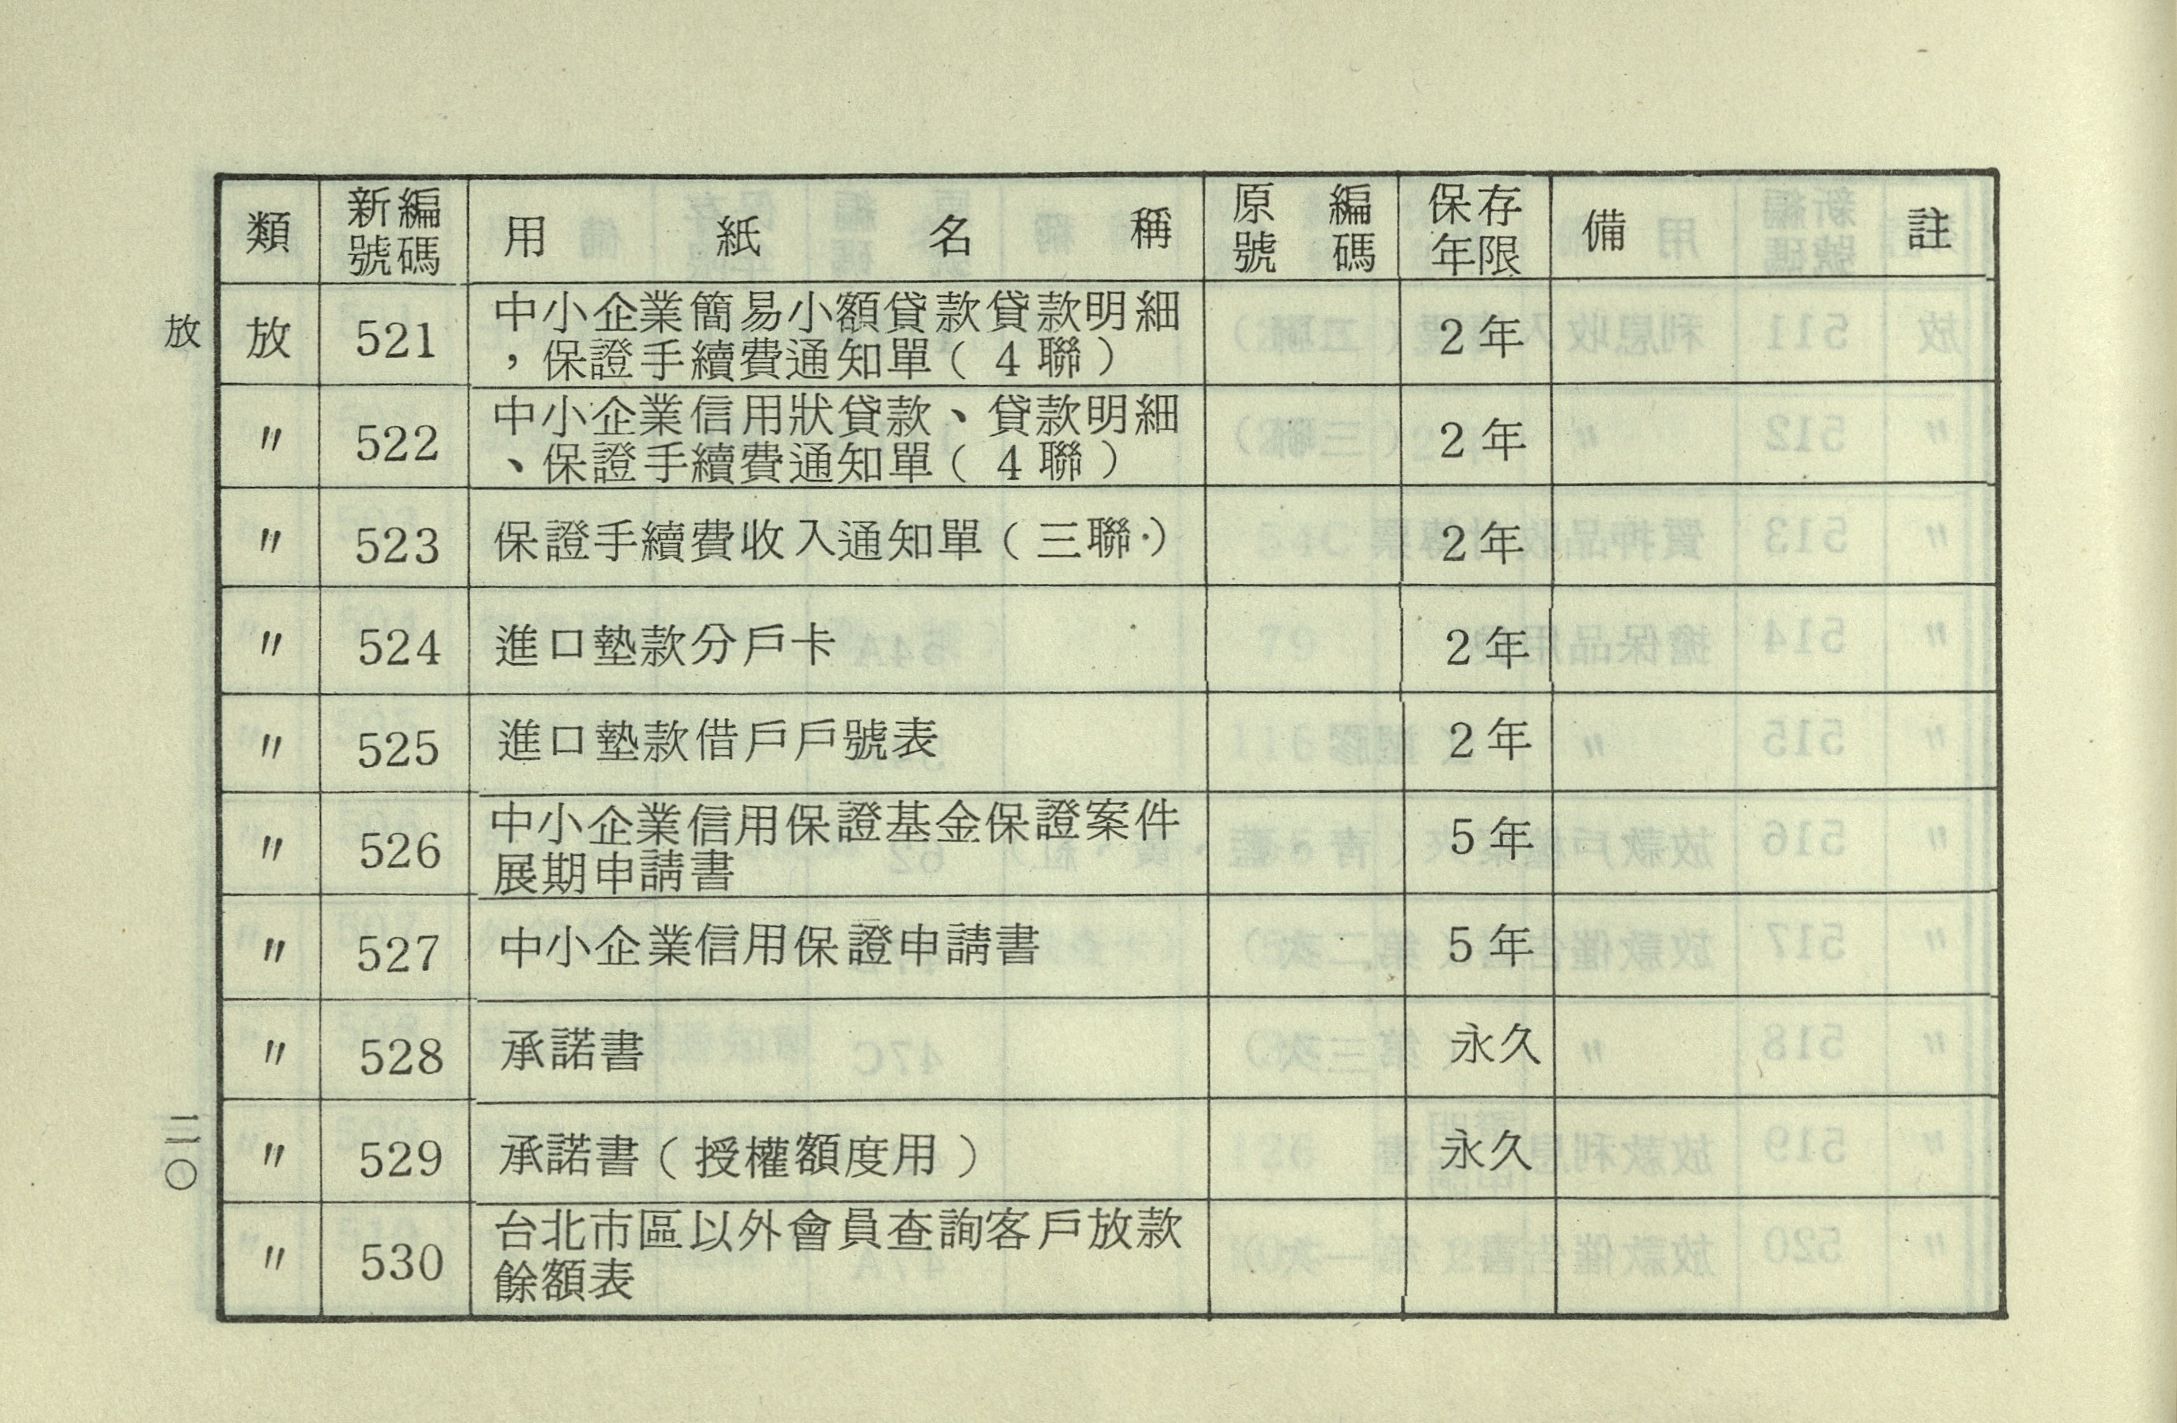 類 新編號碼 用紙名稱 原編號碼 保存年限 備註
放 521 中小企業簡易小額貸款貸款明細
，保證手續費通知單（4聯） 2年
〃 522 中小企業信用狀貸款、貸款明細
、保證手續費通知單（4聯） 2年
〃 523 保證手續費收入通知單（三聯） 2年
〃 524 進口墊款分戶卡 2年
〃 525 進口墊款借戶戶號表 2年
〃 526 中小企業信用保證基金保證案件
展期申請書 5年
〃 527 中小企業信用保證申請書 5年
〃 528 承諾書 永久
〃 529 承諾書（授權額度用） 永久
〃 530 台北市區以外會員查詢客戶放款
餘額表
放
二〇